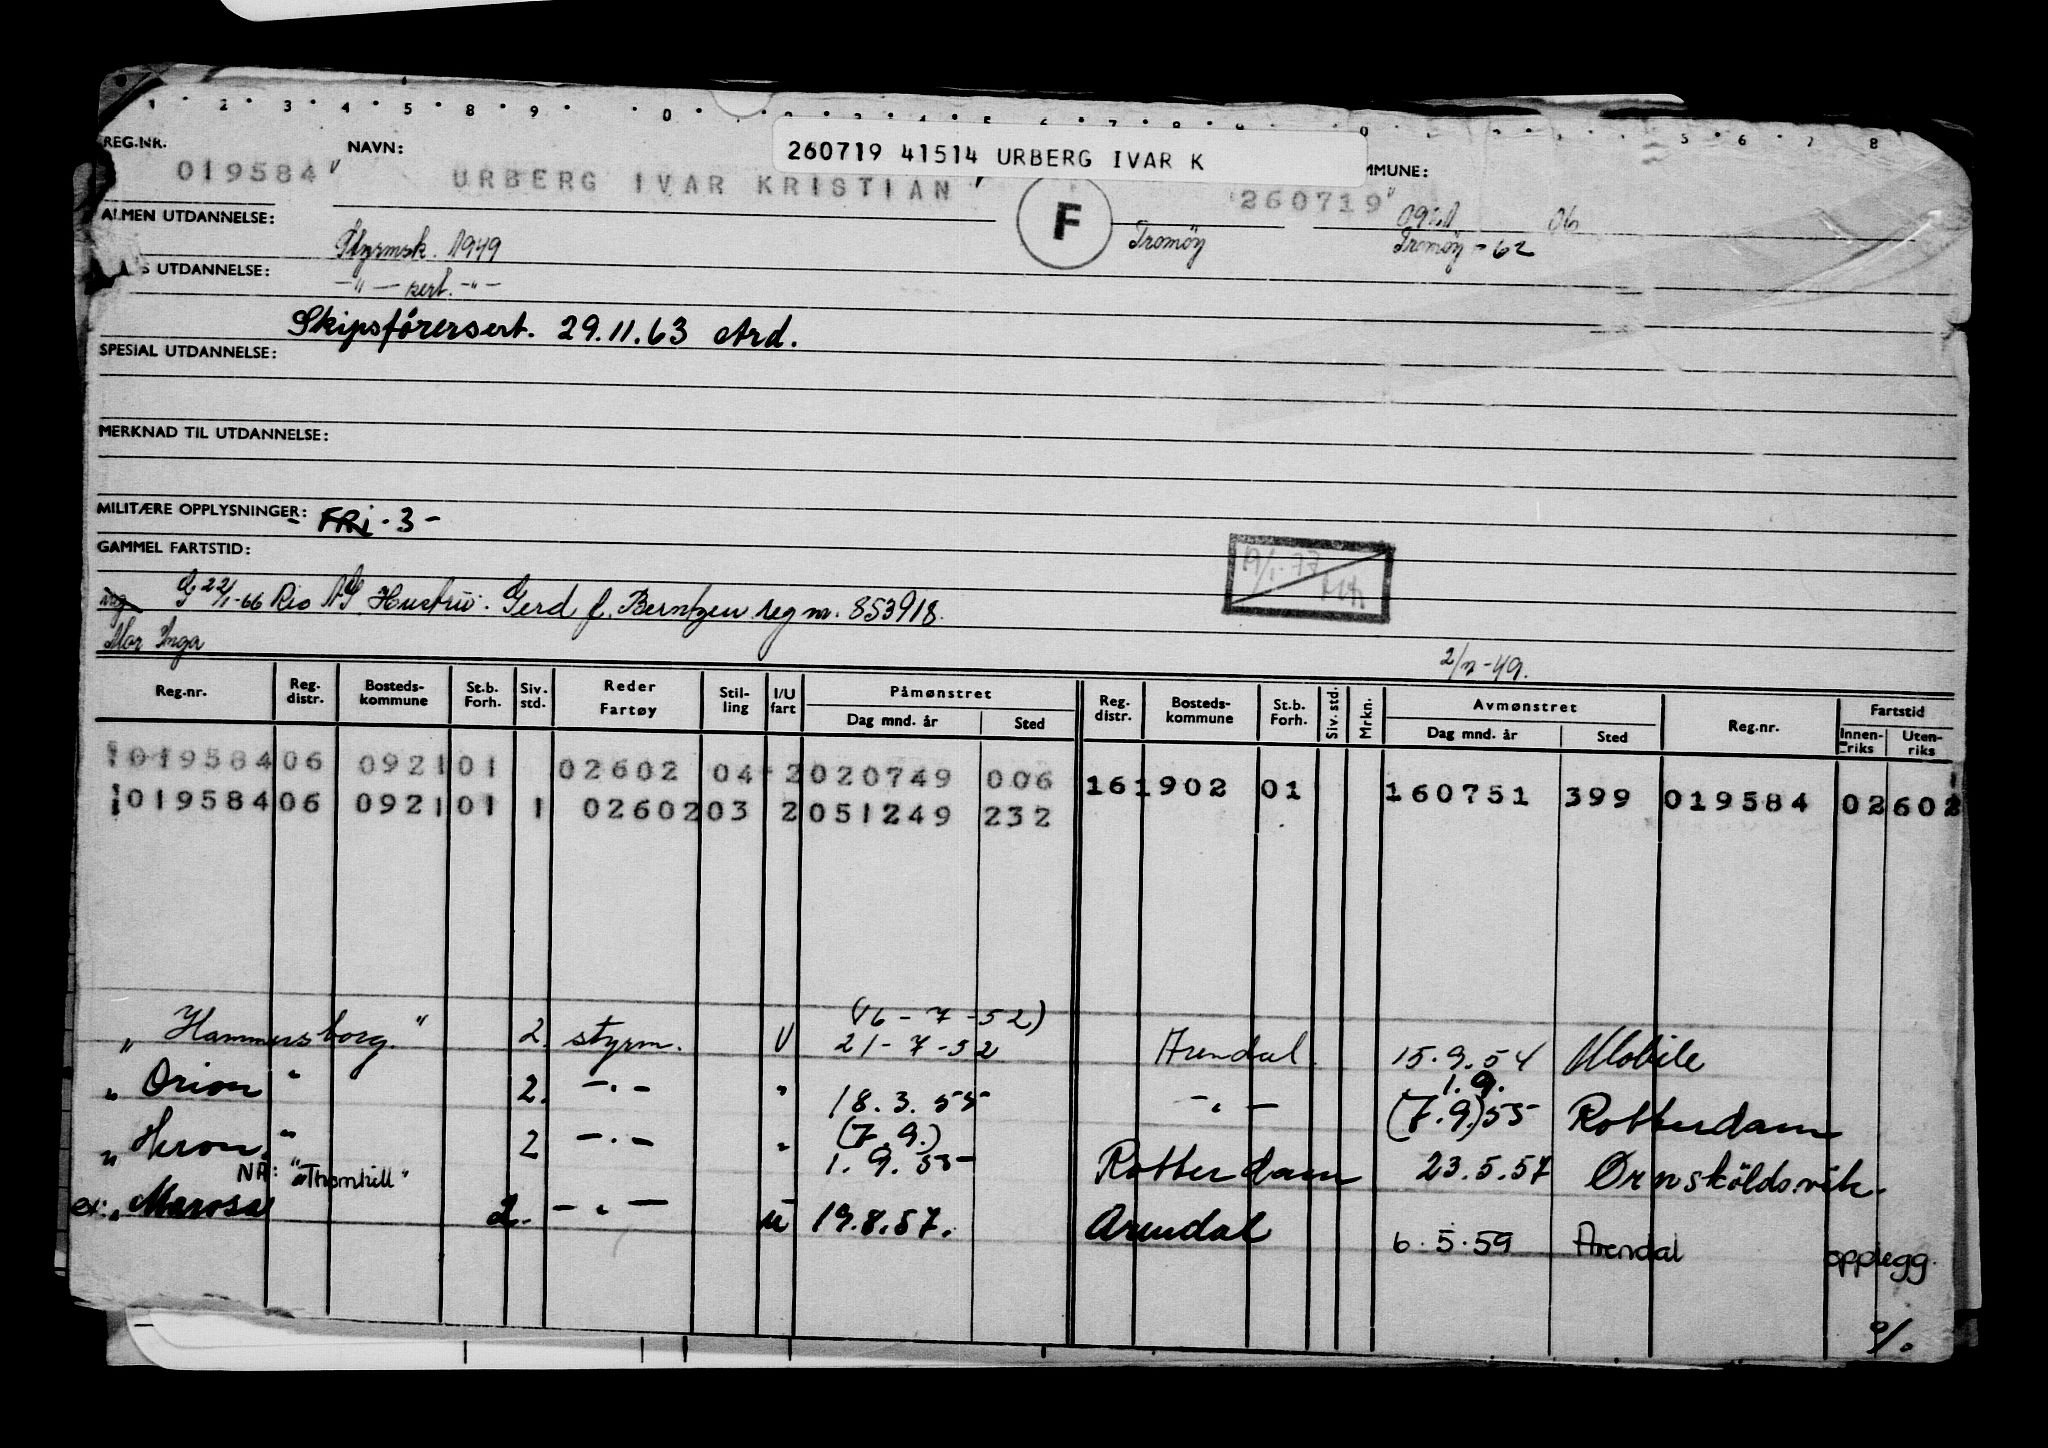 1 2 3 4 5 6 7 8 9 0
5 6 7 8
260719 41514 URBERG IVAR K
REG.NR. NAVN: MMUNE:
019584 URBERG IVAR KRISTIAN 260719
F
ALMEN UTDANNELSE:
Styrmsk. 1949 Tromøy Tromøy - 62 06
S UTDANNELSE:
-"- sert. -"-
Skipsførersert. 29.11.63 Ard.
SPESIAL UTDANNELSE:
MERKNAD TIL UTDANNELSE:
MILITÆRE OPPLYSNINGER: - FRi - 3 -
GAMMEL FARTSTID:
19/1-77
G 22/1-66 Rio Hustru: Gerd f. Berntzen reg nr. 853918.
Mor Inga
2/7-49.
Reg.nr. Reg. distr. Bosteds-kommune St.b. Forh. Siv. std. Reder Fartøy Stil-ling I/U fart Påmønstret Dag mnd. år Sted Reg. distr. Bosteds-kommune St.b. Forh. Siv. std. Mrkn. Avmønstret Dag mnd. år Sted Reg.nr. Fartstid Innen-riks Uten-riks
1019584 06 0921 01 02602 04 2 020749 006 161902 01 160751 399 019584 02602
1019584 06 0921 01 1 02602 03 2 051249 232
(16-7-52)
"Hammersborg." 2. styrm. U 21-7-52 Arendal. 15.9.54 Mobile
1.9.
"Orion" 2. -"- " 18.3.55 -"- (7.9.)55 Rotterdam
(7.9.)
"Heron" 2 -"- " 1.9.55 Rotterdam 23.5.57 Ørnsköldsvik.
NÅ: "Thornhill"
ex: "Marosa 2. -"- u 19.8.57. Arendal 6.5.59 Arendal opplegg.
%.